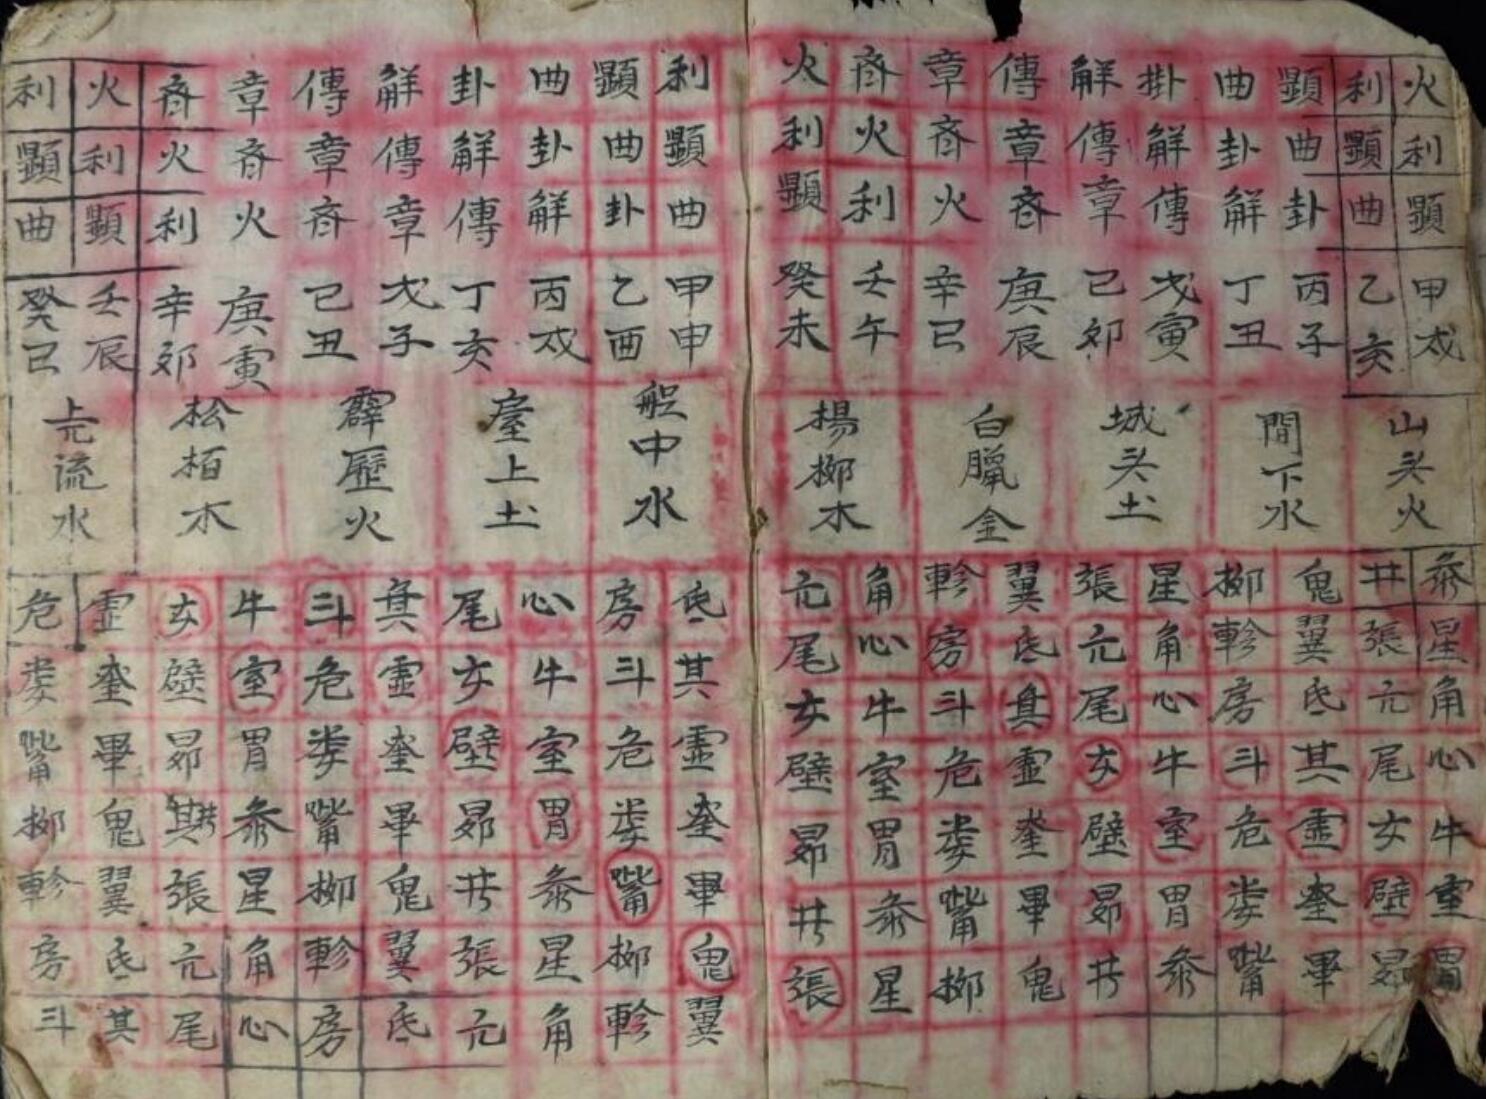 火利顯甲戌
利顯曲乙亥
顯曲卦丙子
曲卦解丁丑
掛解傳戊寅
解傳章己卯
傳章斉庚辰
章斉火辛巳
斉火利壬午
火利顯癸未
山头火
間下水
城头土
白臘金
楊柳木
参星角心牛室胃
井張亢尾女壁昴
鬼翼氐其虚奎畢
柳軫房斗危婁觜
星角心牛室胃参
張亢尾女壁昴井
翼氐其虚奎畢鬼
軫房斗危婁觜柳
角心牛室胃参星
亢尾女壁昴井張
利顯曲甲申
顯曲卦乙酉
曲卦解丙戌
卦解傳丁亥
解傳章戊子
傳章斉己丑
章斉火庚寅
斉火利辛卯
火利顯壬辰
利顯曲癸巳
船中水
屋上土
霹歷火
松栢木
流水
氐其虚奎畢鬼翼
房斗危婁觜柳軫
心牛室胃参星角
尾女壁昴井張亢
其虚奎畢鬼翼氐
斗危婁觜柳軫房
牛室胃参星角心
女壁昴其井張亢尾
虚奎畢鬼翼氐其
危婁觜柳軫房斗